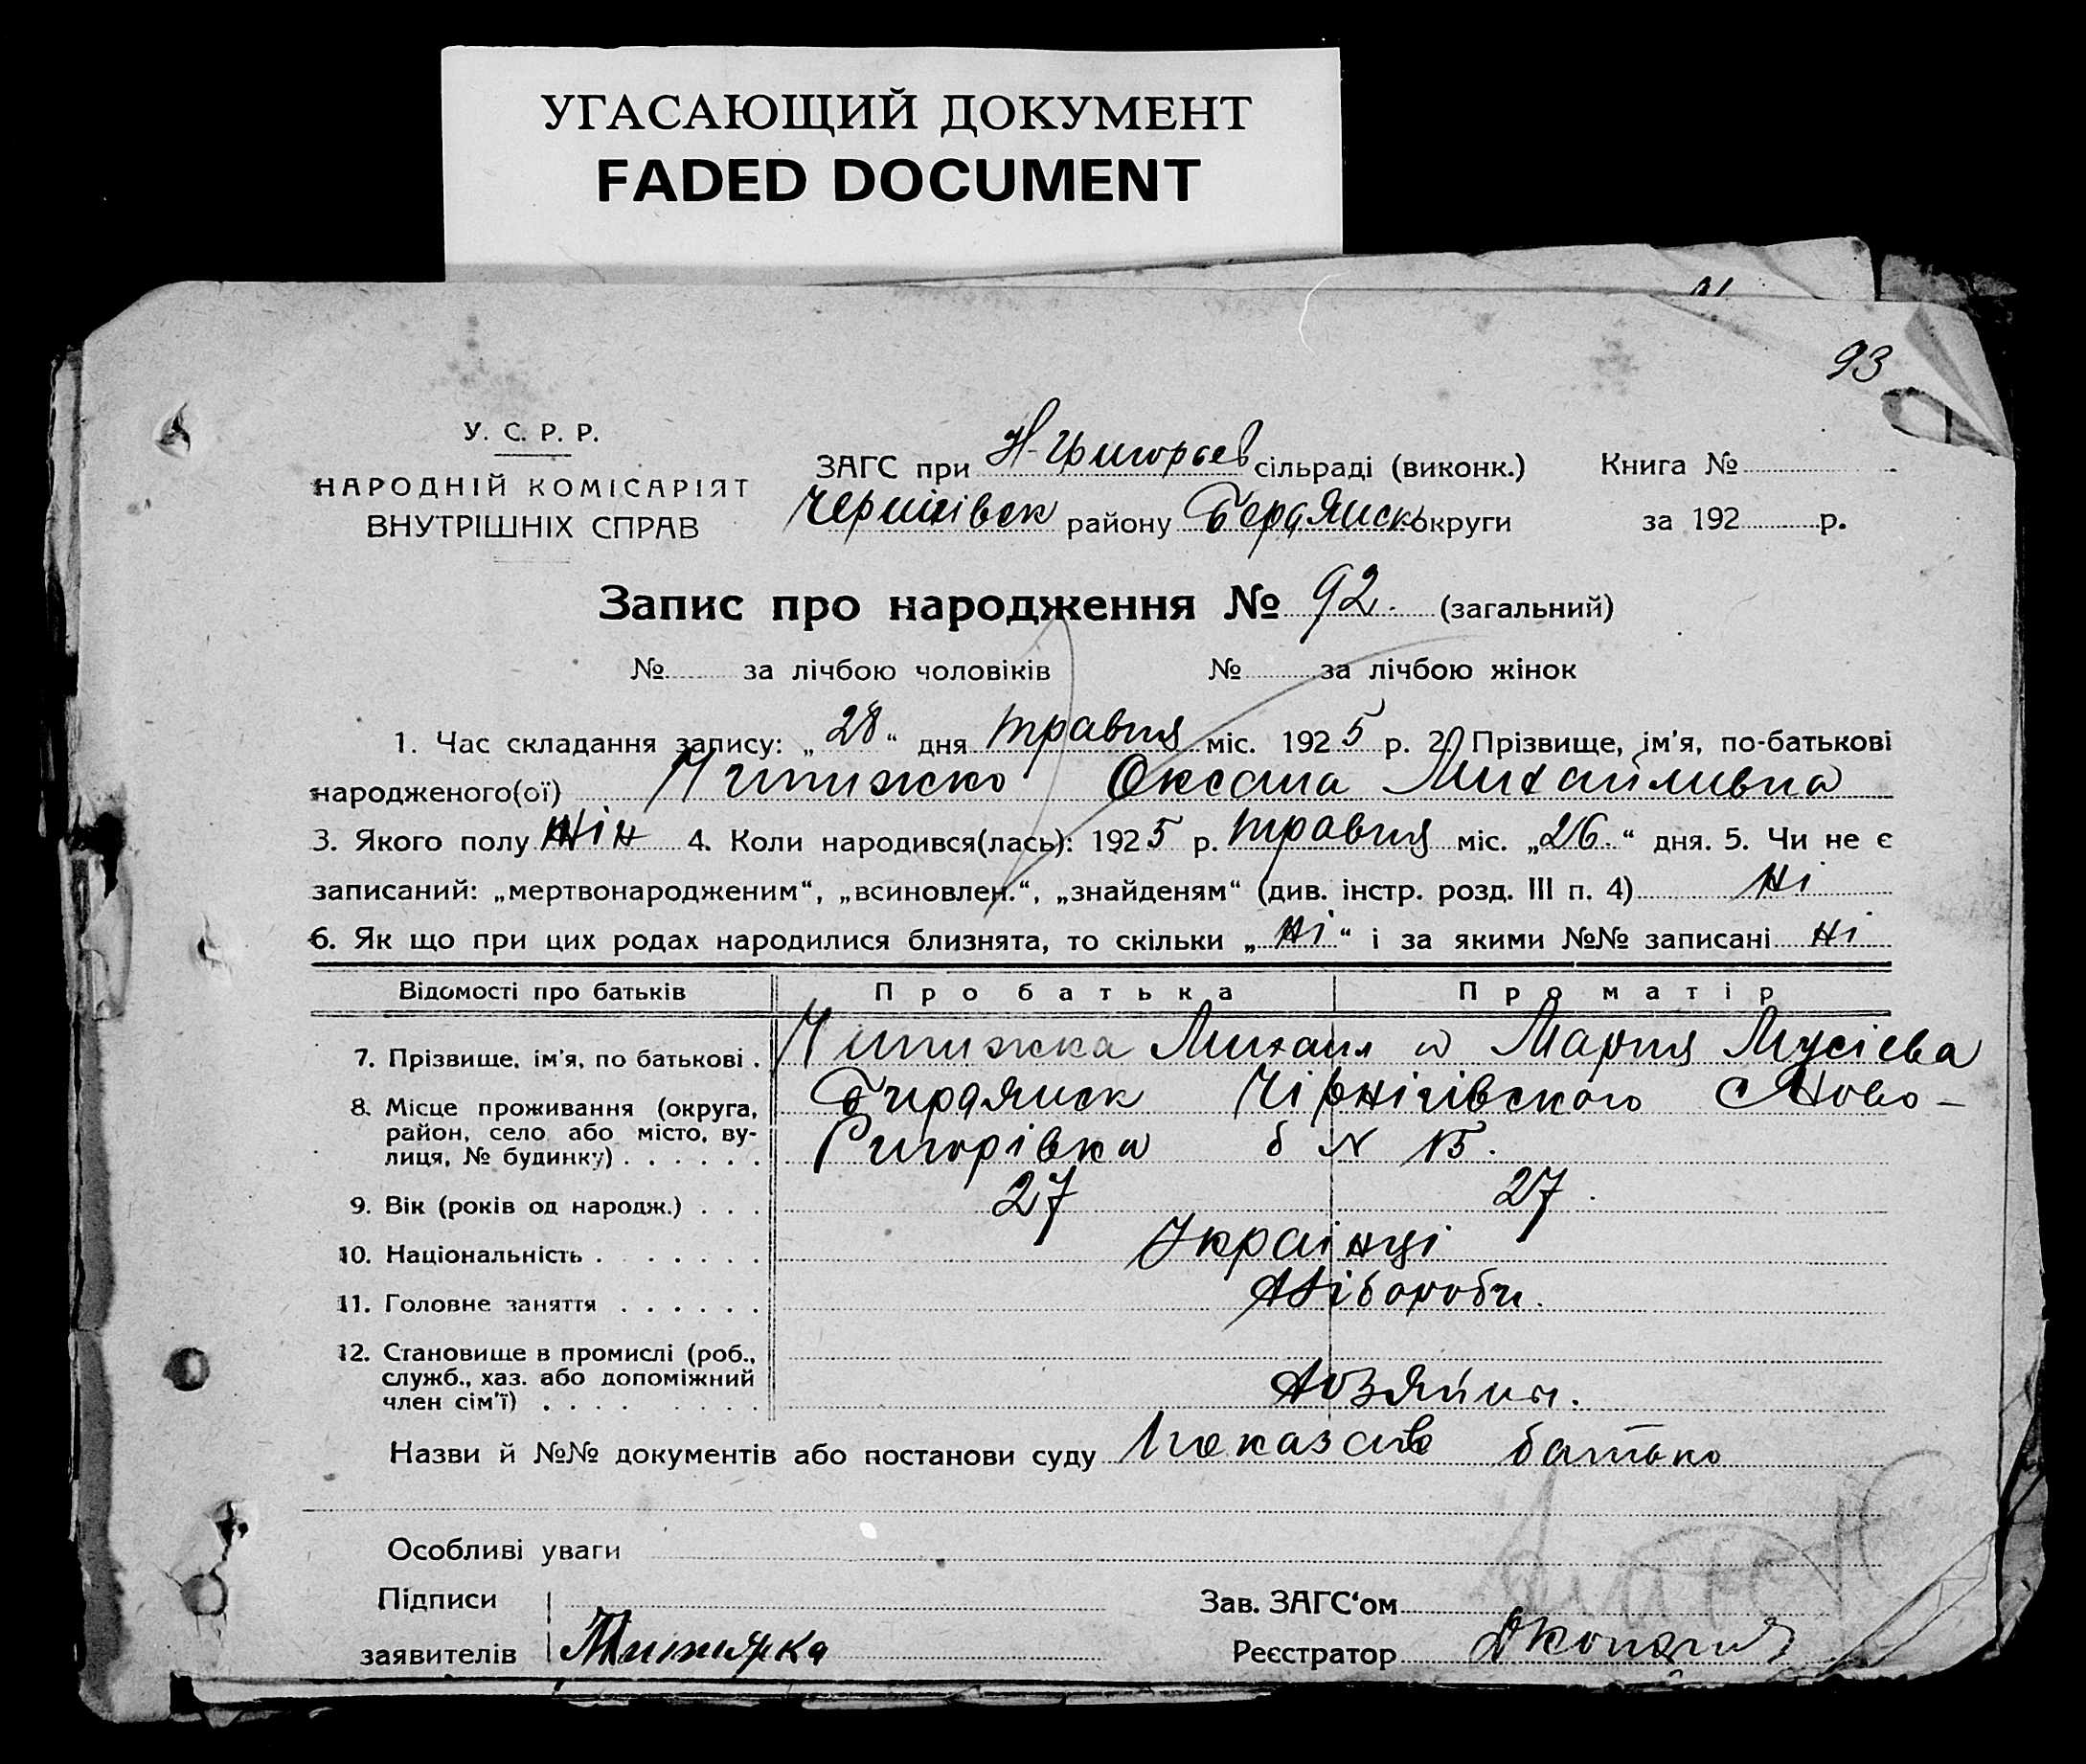 УГАСАЮЩИЙ ДОКУМЕНТ
FADED DOCUMENT
93
У. С. Р. Р.
НАРОДНІЙ КОМІСАРІЯТ
ВНУТРІШНІХ СПРАВ
ЗАГС при Н-Григорьев сільраді (виконк.) Книга №
Чернігівск району Бердянськ округи за 192 р.
Запис про народження № 92. (загальний)
№ за лічбою чоловіків № за лічбою жінок
1. Час складання запису: „28“ дня травня міс. 1925 р. 2. Прізвище, ім'я, по-батькові
народженого(ої) Чипижко Оксана Михайливна
3. Якого полу жін 4. Коли народився(лась): 1925 р. травня міс. „26.“ дня. 5. Чи не є
записаний: „мертвонародженим“, „всиновлен.“, „знайденям“ (див. інстр. розд. III п. 4) Ні
6. Як що при цих родах народилися близнята, то скільки „Ні“ і за якими №№ записані Ні
Відомості про батьків Про батька Про матір
7. Прізвище, ім'я, по батькові . Чипижка Михаил и Мария Мусієва
8. Місце проживання (округа, Бирдянск Чірнігівского Ново-
район, село або місто, ву-
лиця, № будинку) . . . . . . Григорівка б N 15.
9. Вік (років од народж.) . . . 27 27.
10. Національність . . . . . . . Украінці
11. Головне заняття . . . . . . Хліборобы.
12. Становище в промислі (роб.,
служб., хаз. або допоміжний
член сім'ї) . . . . . . . . Хозяйны.
Назви й №№ документів або постанови суду показав батько
Особливі уваги
Підписи Зав. ЗАГС'ом
заявителів Реєстратор